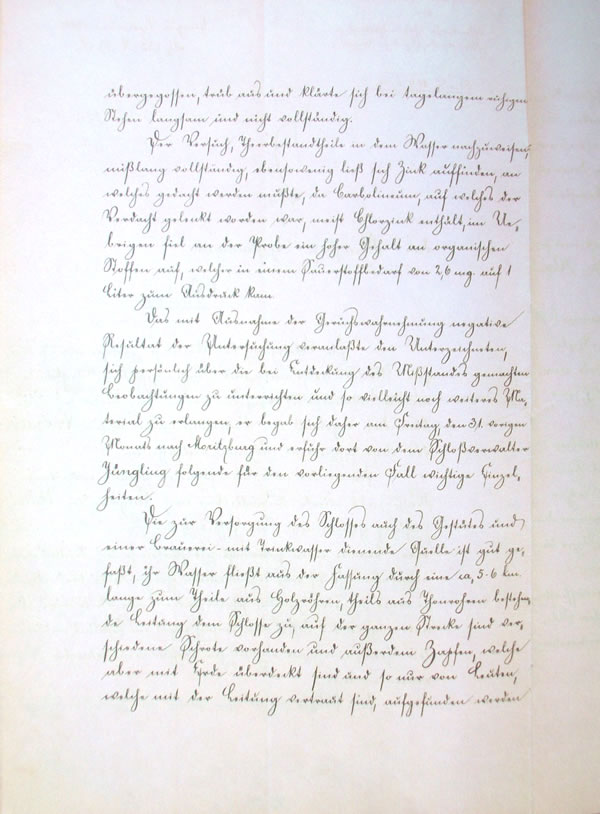 übergegossen, trüb aus und klärte sich bei tagelangem ruhigem
Stehen langsam und nicht vollständig.
Der Versuch, Theerbestandtheile in dem Wasser nachzuweisen,
mißlang vollständig, ebensowenig ließ sich Zink auffinden, an
welches gedacht werden mußte, da Carbolineum, auf welches der
Verdacht gelenkt worden war, meist Chlorzink enthält, im Ue-
brigen fiel an der Probe ein hoher Gehalt an organischen
Stoffen auf, welcher in einem Sauerstoffbedarf von 2,6 mg auf 1
Liter zum Ausdruck kam
Das mit Ausnahme der Geruchswahrnehmung negative
Resultat der Untersuchung veranlaßte den Unterzeichneten,
sich persönlich über die bei Entdeckung des Mißstandes gemachten
Beobachtungen zu unterrichten und so vielleicht noch weiteres Ma-
terial zu erlangen, er begab sich daher am Freitag, den 31. vorigen
Monats nach Moritzburg und erfuhr dort von dem Schloßverwalter
Jüngling folgende für den vorliegenden Fall wichtige Einzel-
heiten.
Die zur Versorgung des Schlosses auch des Gestütes und
einer Brauerei - mit Trinkwasser dienende Quelle ist gut ge-
faßt, ihr Wasser fließt aus der Fassung durch eine ca, 5-6 km.
lange zum Theile aus Holzröhren, theils aus Thonrohren bestehen-
de Leitung dem Schlosse zu, auf der ganzen Strecke sind ver-
schiedene Schrote vorhanden und außerdem Zapfen, welche
aber mit Erde überdeckt sind und so nur von Leuten,
welche mit der Leitung vertraut sind, aufgefunden werden